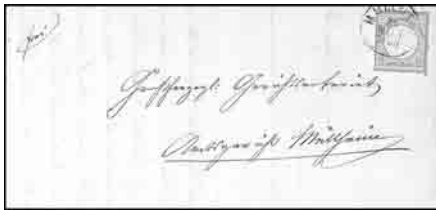 frei.
MÜLLH
Großherzogl. Gerichtsnotariat,
Amtsgericht Müllheim